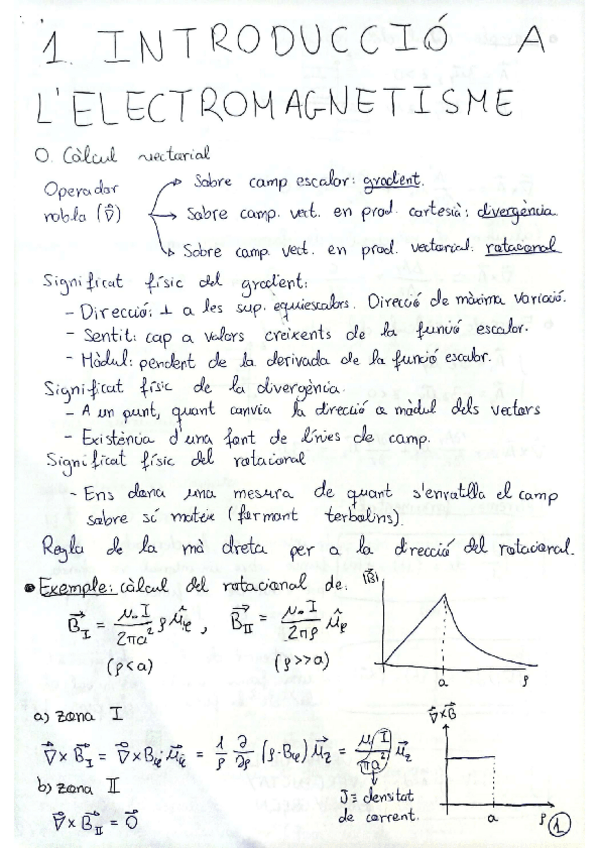 1. INTRODUCCIÓ A
L'ELECTROMAGNETISME
0. Càlcul vectorial
Operador nabla (∇⃗)
→ Sobre camp escalar: gradent.
→ Sobre camp. vect. en prod. cartesià: divergència
→ Sobre camp. vect. en prod. vectorial. rotacional
Significat físic del gradent:
- Direcció: ⊥ a les sup. equiescalars. Direcció de màxima variació.
- Sentit: cap a valors creixents de la funció escalar.
- Mòdul: pendent de la derivada de la funció escalar.
Significat físic de la divergència.
- A un punt, quant canvia la direcció a mòdul dels vectors
- Existència d'una font de línies de camp.
Significat físic del rotacional
- Ens dona una mesura de quant s'enrotlla el camp
sobre sí mateix (formant terbolins).
Regla de la mà dreta per a la direcció del rotacional.
• Exemple: càlcul del rotacional de:
B⃗_I = μ₀I/2πa² ρ û_φ , B⃗_II = μ₀I/2πρ û_φ
(ρ<a) (ρ>>a)
|B⃗|
a ρ
a) zona I
∇⃗×B⃗_I = ∇⃗×B_φ·u⃗_φ = 1/ρ ∂/∂ρ (ρ·B_φ) u⃗_z = μ₀I/πa² u⃗_z
J ≡ densitat
de corrent.
∇⃗×B⃗
a ρ
b) zona II
∇⃗×B⃗_II = 0⃗
1